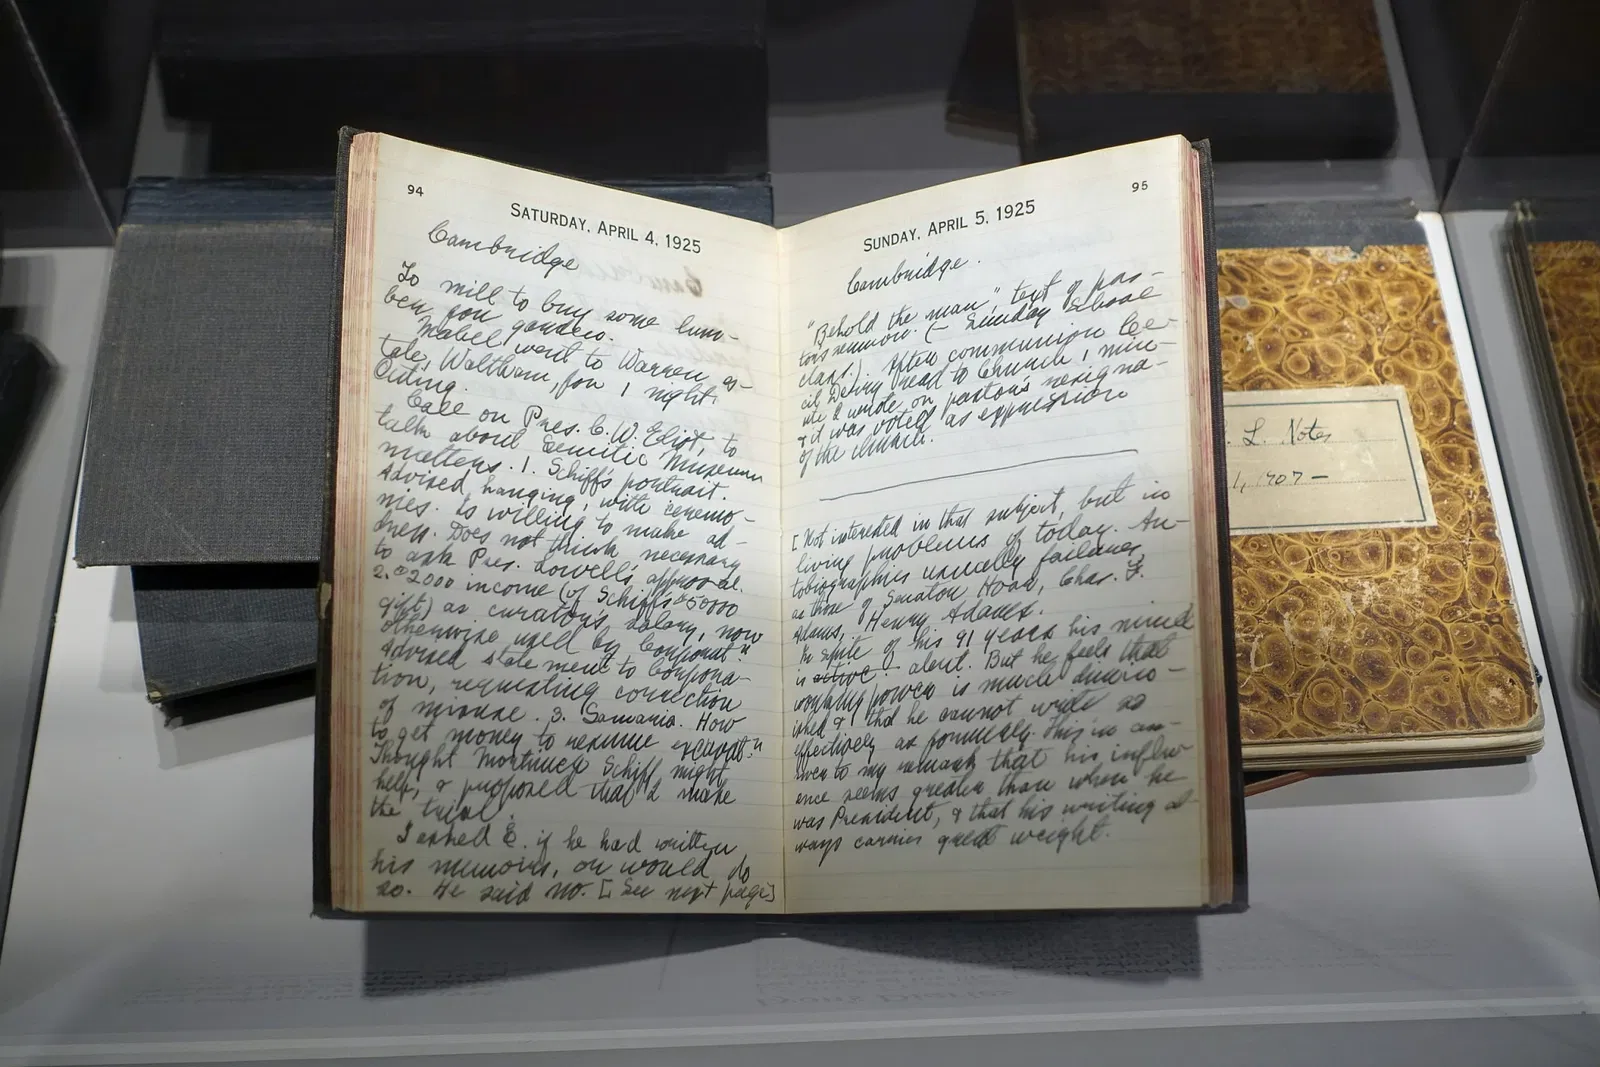 94
SATURDAY, APRIL 4, 1925
Cambridge
To mill to buy some lum-
ber for garden.
Mabel went to Warren es-
tate, Waltham, for 1 night.
Outing.
Call on Pres. C. W. Eliot, to
talk about Semitic Museum
matters. 1. Schiff's portrait.
Advised hanging, with ceremo-
nies. Is willing to make ad-
dress. Does not think necessary
to ask Pres. Lowell's approval.
2. $2000 income (of Schiff's $50000
gift) as curator's salary, now
otherwise used by Corporat'n.
Advised statement to Corpora-
tion, requesting correction
of misuse. 3. Samaria. How
to get money to resume excavat'n?
Thought Mortimer Schiff might
help, & proposed that I make
the trial.
I asked E. if he had written
his memoirs, or would do
so. He said no. [See next page]
95
SUNDAY, APRIL 5, 1925
Cambridge.
"Behold the man", text of pas-
tor's sermon. (- Sunday School
class). After communion
read to Church
wrote on pastor's resigna-
& it was voted as expression
of the church.
[Not interested in that subject, but in
living problems of today. Au-
tobiographies usually failures,
as those of Senator Hoar, Chas. F.
Adams, Henry Adams.
In spite of his 91 years his mind
is active alert. But he feels that
working power is much dimin-
ished & that he cannot write so
effectively as formerly. This in an-
swer to my remark that his influ-
ence seems greater than when he
was President, & that his writing al-
ways carries great weight.
L. Notes
1, 1907 -